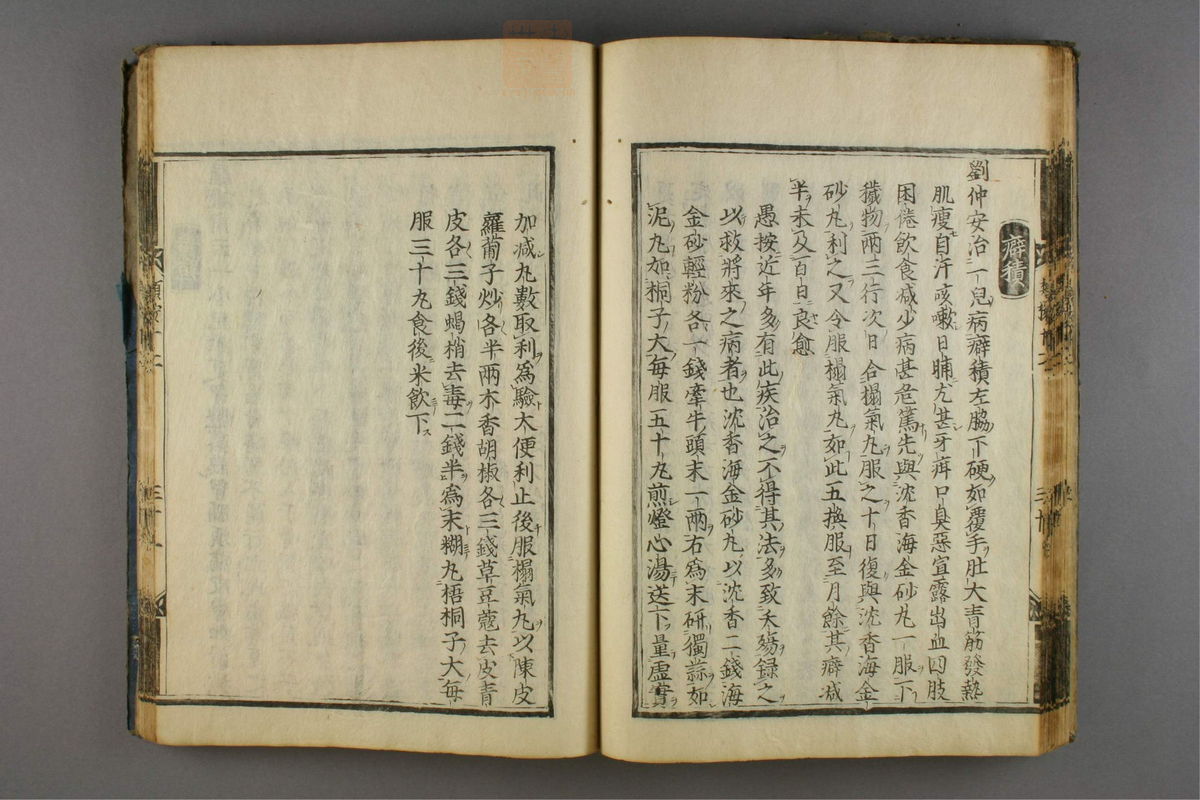 癖積
劉仲安治一兒病癖積左脇下硬如覆手肚大青筋發熱
肌瘦自汗咳嗽日晡尤甚牙疳口臭惡宣露出血四肢
困倦飲食減少病甚危篤先與沈香海金砂丸一服下
穢物兩三行次日合榻氣丸服之十日復與沈香海金
砂丸利之又令服榻氣丸如此五換服至月餘其癖減
半未及百日良愈
愚按近年多有此疾治之不得其法多致夭殤録之
以救將來之病者也沈香海金砂丸以沈香二錢海
金砂輕粉各一錢牽牛頭末一兩右為末研獨蒜如
泥丸如桐子大每服五十丸煎燈心湯送下量虛實
加減丸數取利為驗大便利止後服榻氣丸以陳皮
蘿蔔子炒各半兩木香胡椒各三錢草豆蔻去皮青
皮各三錢蝎梢去毒二錢半為末糊丸梧桐子大每
服三十丸食後米飲下